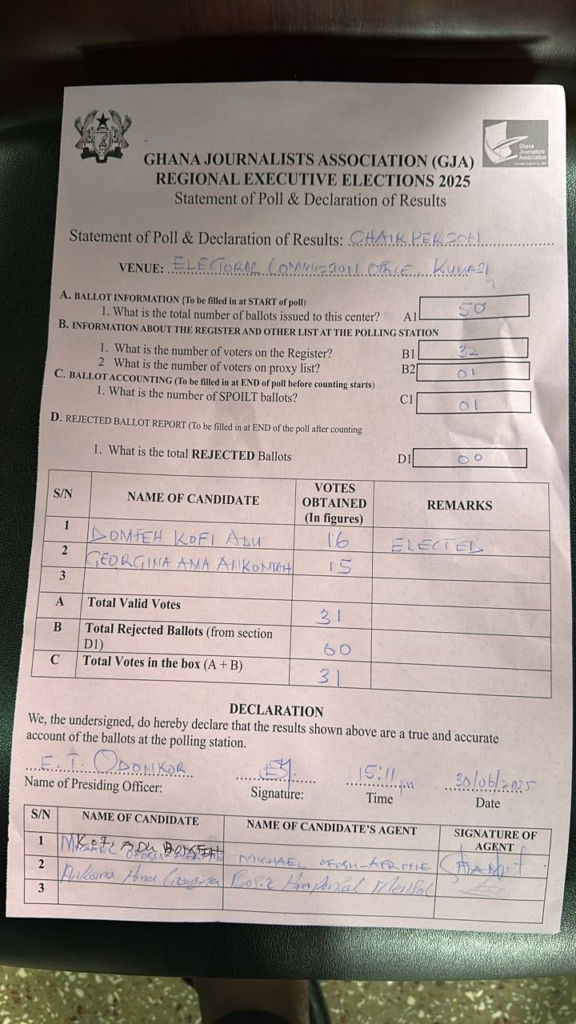 Ghana
Journalists
Association
GHANA JOURNALISTS ASSOCIATION (GJA)
REGIONAL EXECUTIVE ELECTIONS 2025
Statement of Poll & Declaration of Results
Statement of Poll & Declaration of Results: CHAIRPERSON
VENUE: ELECTORAL COMMISSION OFFICE, KUMASI
A. BALLOT INFORMATION (To be filled in at START of poll)
1. What is the total number of ballots issued to this center? A1 50
B. INFORMATION ABOUT THE REGISTER AND OTHER LIST AT THE POLLING STATION
1. What is the number of voters on the Register? B1 32
2 What is the number of voters on proxy list? B2 01
C. BALLOT ACCOUNTING (To be filled in at END of poll before counting starts)
1. What is the number of SPOILT ballots? C1 01
D. REJECTED BALLOT REPORT (To be filled in at END of the poll after counting
1. What is the total REJECTED Ballots D1 00
S/N NAME OF CANDIDATE VOTES OBTAINED (In figures) REMARKS
1 DOMFEH KOFI ADU 16 ELECTED
2 GEORGINA AMA ANKOMAH 15
3
A Total Valid Votes 31
B Total Rejected Ballots (from section D1) 00
C Total Votes in the box (A + B) 31
DECLARATION
We, the undersigned, do hereby declare that the results shown above are a true and accurate
account of the ballots at the polling station.
E. T. ODONKOR 15:11 pm 30/06/2025
Name of Presiding Officer: Signature: Time Date
S/N NAME OF CANDIDATE NAME OF CANDIDATE'S AGENT SIGNATURE OF AGENT
1 KOFI ADU DOMFEH MICHAEL OFOSU-AFRIYIE
2 Ankoma Ama Georgina
3